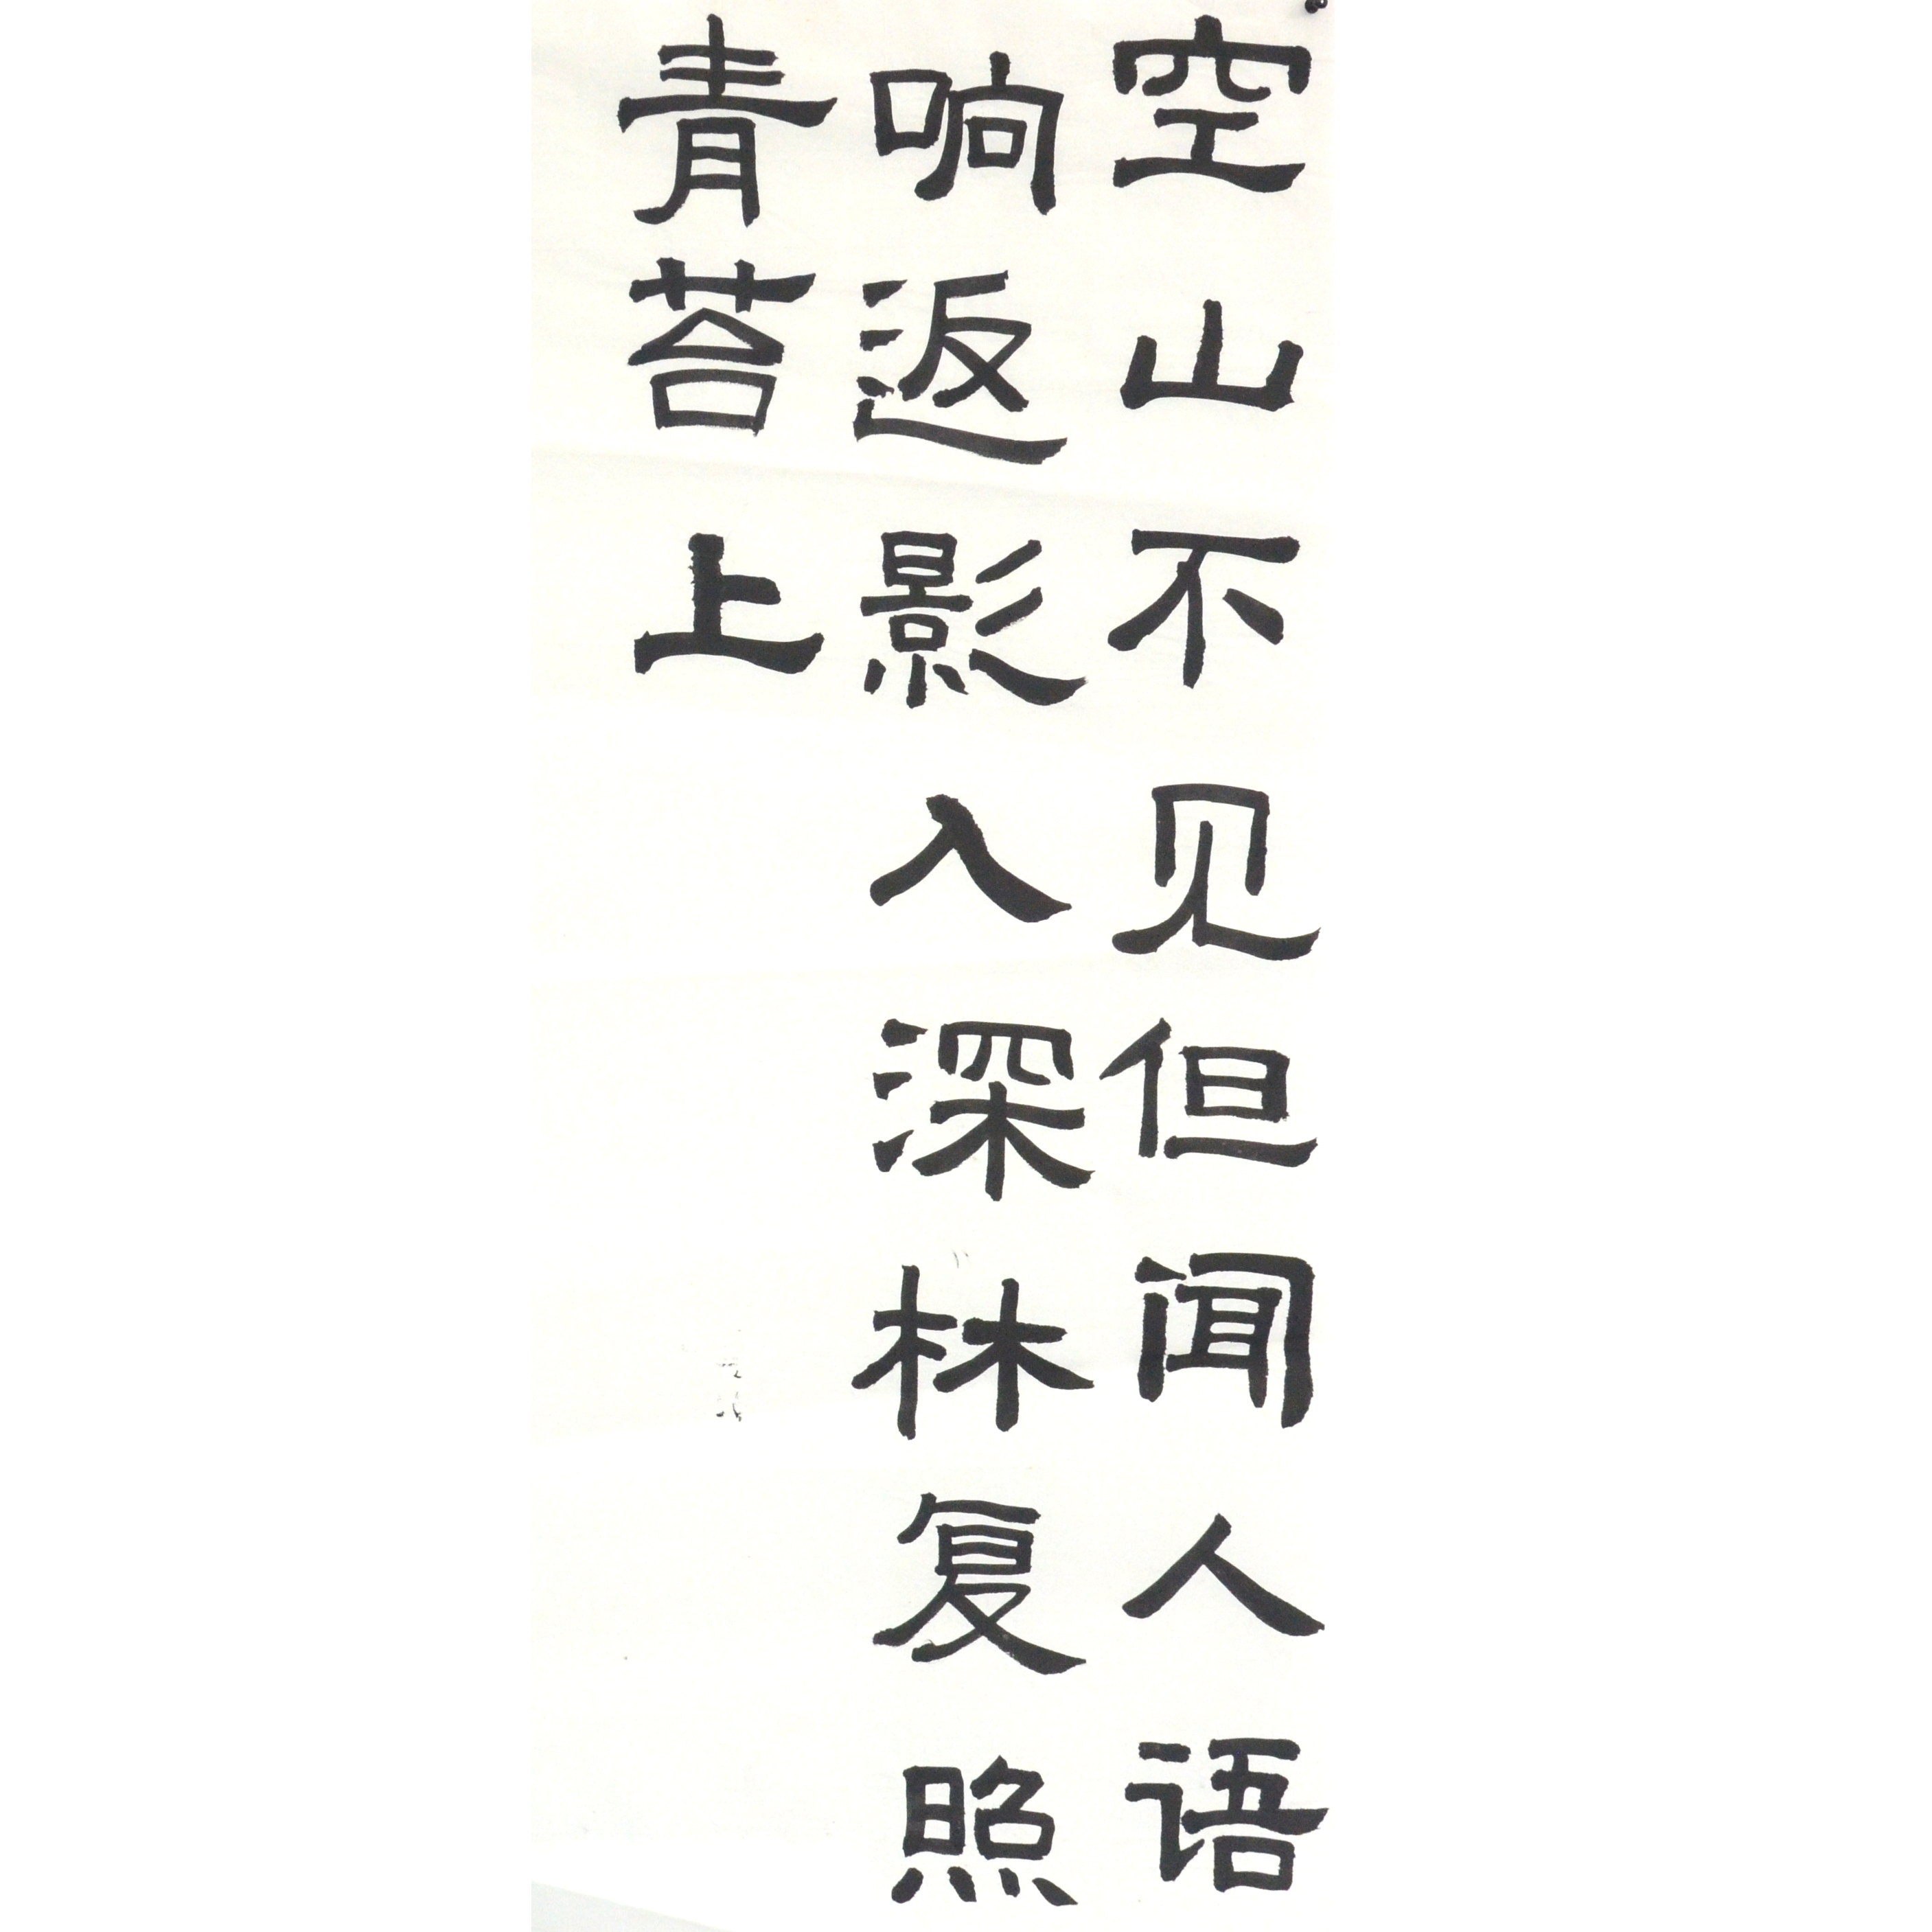 空山不见但闻人语
响返影入深林复照
青苔上